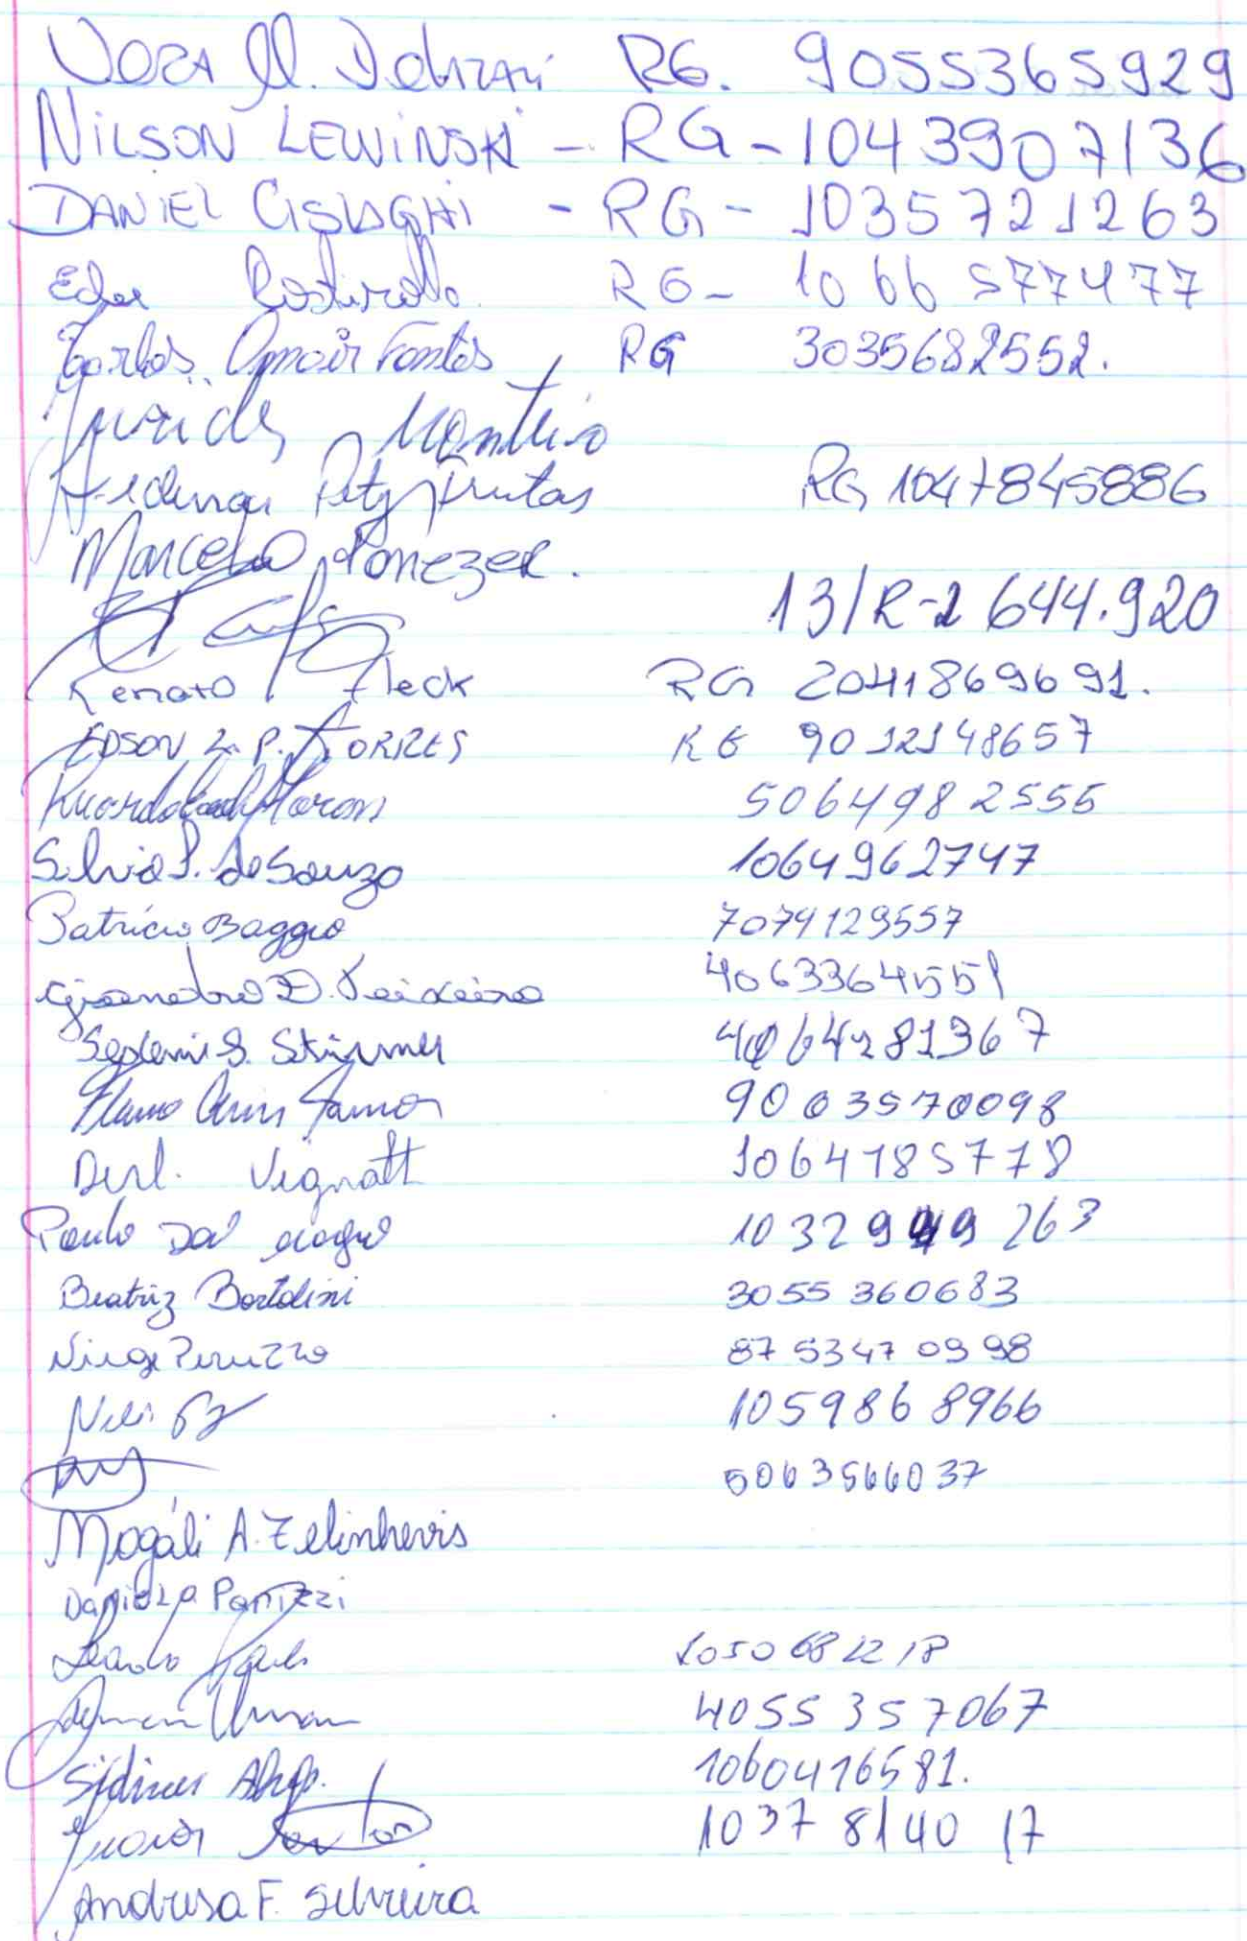 VERA M. RG. 9055365929
NILSON LEWINSKI - RG - 1043907136
DANIEL CISLAGHI - RG - 1035721263
Eder RG - 1066577477
Carlos Omair Fontes RG 3035682552.
Monteiro
Fritas RG 1047845886
Marcelo Ponezer.
13/R-2 644.920
Renato Fleck RG 2041869691.
EDSON L. P. TORRES RG 9012148657
Ricardo 5064982555
Silvia P. de Souza 1064962747
Patrícia Baggio 7079129557
D. Teixeira 4063364551
S. Stürmer 4064281367
Ramos 9003570098
Vignatt 1064785778
Paulo Dal 1032949263
Beatriz Bortolini 3055 360683
Peruzzo 87 5347 0998
Neli 1059868966
5063566037
Magáli A. Zelinhevis
Daniela Panizzi
1050 68 22 18
4055 357067
Sidinei 1060416581.
1037 8140 17
Andresa F. Silveira